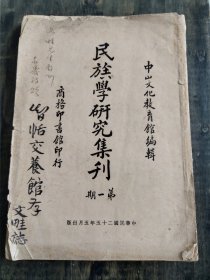 中山文化教育館編輯
民族學研究集刊
第一期
商務印書館印行
智恬交養館存
中華民國二十五年五月出版